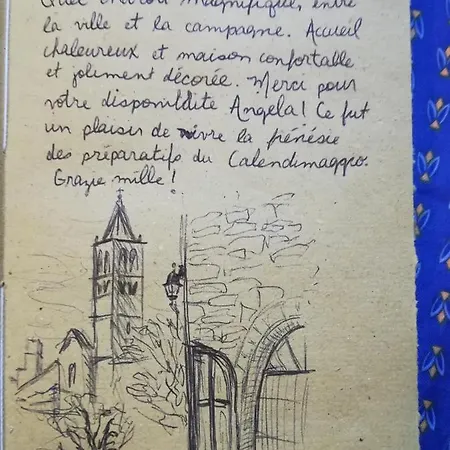 Quel endroit magnifique, entre
la ville et la campagne. Accueil
chaleureux et maison confortable
et joliment décorée. Merci pour
votre disponibilité Angela! Ce fut
un plaisir de vivre la frénésie
des préparatifs du Calendimaggio.
Grazie mille!